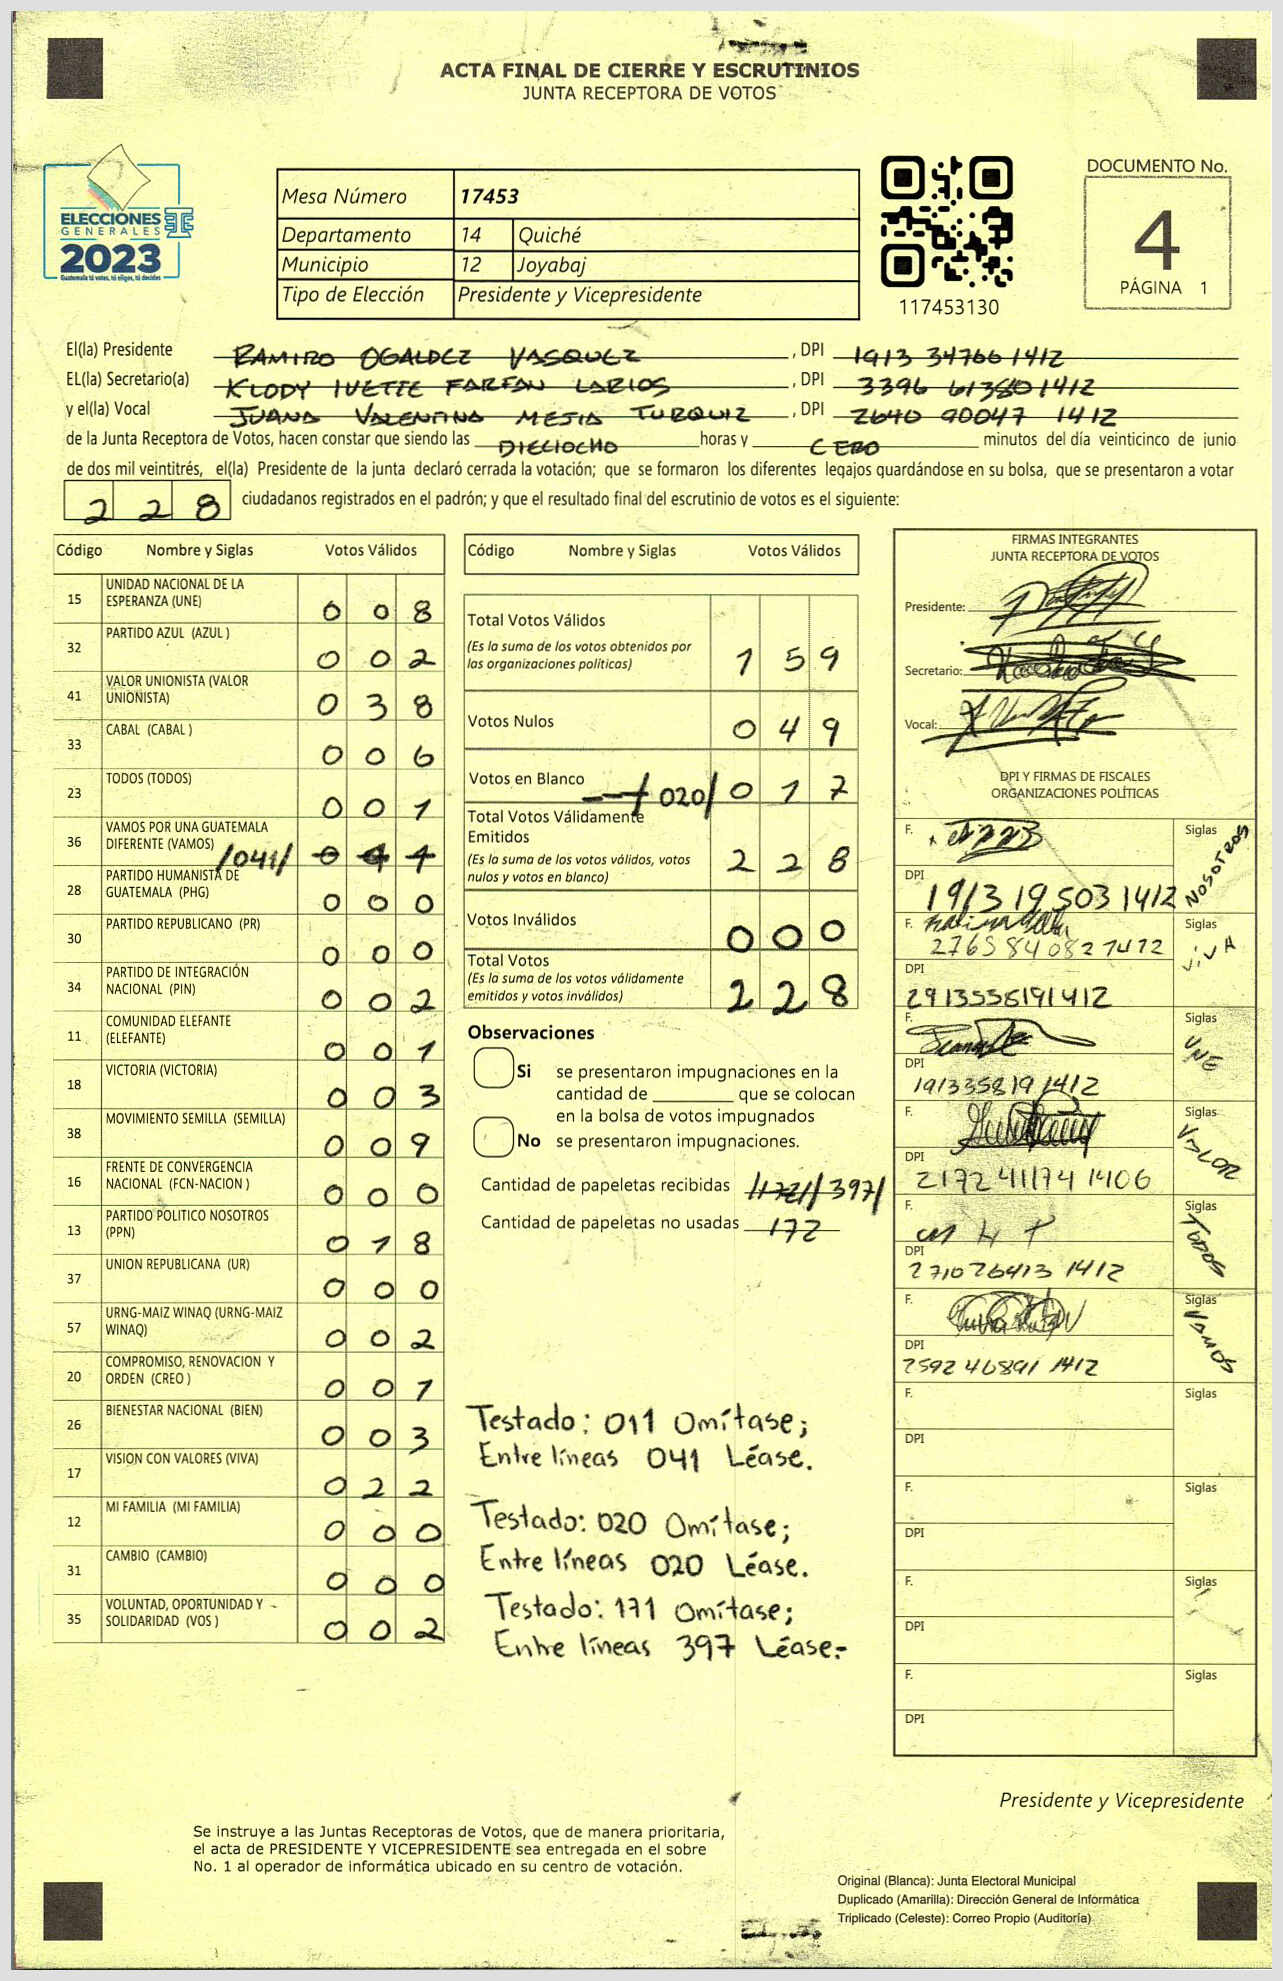 ACTA FINAL DE CIERRE Y ESCRUTINIOS
JUNTA RECEPTORA DE VOTOS
ELECCIONES
GENERALES
2023
Guatemala tú votas, tú eliges, tú decides
Mesa Número 17453
Departamento 14 Quiché
Municipio 12 Joyabaj
Tipo de Elección Presidente y Vicepresidente
117453130
DOCUMENTO No.
4
PÁGINA 1
El(la) Presidente RAMIRO OGALDEZ VASQUEZ , DPI 1913 34766 1412
EL(la) Secretario(a) KLODY IVETTE FARFAN LARIOS , DPI 3396 61380 1412
y el(la) Vocal JUANA VALENTINA MEJIA TURQUIZ , DPI 2640 90047 1412
de la Junta Receptora de Votos, hacen constar que siendo las DIECIOCHO horas y CERO minutos del día veinticinco de junio
de dos mil veintitrés, el(la) Presidente de la junta declaró cerrada la votación; que se formaron los diferentes legajos quardándose en su bolsa, que se presentaron a votar
228 ciudadanos registrados en el padrón; y que el resultado final del escrutinio de votos es el siguiente:
Código Nombre y Siglas Votos Válidos
15 UNIDAD NACIONAL DE LA ESPERANZA (UNE) 0 0 8
32 PARTIDO AZUL (AZUL ) 0 0 2
41 VALOR UNIONISTA (VALOR UNIONISTA) 0 3 8
33 CABAL (CABAL ) 0 0 6
23 TODOS (TODOS) 0 0 1
36 VAMOS POR UNA GUATEMALA DIFERENTE (VAMOS) /041/
28 PARTIDO HUMANISTA DE GUATEMALA (PHG) 0 0 0
30 PARTIDO REPUBLICANO (PR) 0 0 0
34 PARTIDO DE INTEGRACIÓN NACIONAL (PIN) 0 0 2
11 COMUNIDAD ELEFANTE (ELEFANTE) 0 0 1
18 VICTORIA (VICTORIA) 0 0 3
38 MOVIMIENTO SEMILLA (SEMILLA) 0 0 9
16 FRENTE DE CONVERGENCIA NACIONAL (FCN-NACION ) 0 0 0
13 PARTIDO POLITICO NOSOTROS (PPN) 0 1 8
37 UNION REPUBLICANA (UR) 0 0 0
57 URNG-MAIZ WINAQ (URNG-MAIZ WINAQ) 0 0 2
20 COMPROMISO, RENOVACION Y ORDEN (CREO ) 0 0 1
26 BIENESTAR NACIONAL (BIEN) 0 0 3
17 VISION CON VALORES (VIVA) 0 2 2
12 MI FAMILIA (MI FAMILIA) 0 0 0
31 CAMBIO (CAMBIO) 0 0 0
35 VOLUNTAD, OPORTUNIDAD Y SOLIDARIDAD (VOS ) 0 0 2
Código Nombre y Siglas Votos Válidos
Total Votos Válidos 1 5 9
(Es la suma de los votos obtenidos por
las organizaciones políticas)
Votos Nulos 0 4 9
Votos en Blanco /020/ 0 1 7
Total Votos Válidamente
Emitidos 2 2 8
(Es la suma de los votos válidos, votos
nulos y votos en blanco)
Votos Inválidos 0 0 0
Total Votos 2 2 8
(Es la suma de los votos válidamente
emitidos y votos inválidos)
Observaciones
Si se presentaron impugnaciones en la
cantidad de ________ que se colocan
en la bolsa de votos impugnados
No se presentaron impugnaciones.
Cantidad de papeletas recibidas /397/
Cantidad de papeletas no usadas 172
Testado: 011 Omítase;
Entre líneas 041 Léase.
Testado: 020 Omítase;
Entre líneas 020 Léase.
Testado: 171 Omítase;
Entre líneas 397 Léase.-
FIRMAS INTEGRANTES
JUNTA RECEPTORA DE VOTOS
Presidente:
Secretario:
Vocal:
DPI Y FIRMAS DE FISCALES
ORGANIZACIONES POLÍTICAS
F. Siglas NOSOTROS
DPI 1913 19 503 1412
F. Siglas VIVA
DPI 2913538191412
F. Siglas UNE
DPI 191335819 1412
F. Siglas VALOR
DPI 2172 41174 1406
F. Siglas TODOS
DPI 271026413 1412
F. Siglas VAMOS
DPI 2592 46891 1412
F. Siglas
DPI
F. Siglas
DPI
F. Siglas
DPI
F. Siglas
DPI
Presidente y Vicepresidente
Se instruye a las Juntas Receptoras de Votos, que de manera prioritaria,
el acta de PRESIDENTE Y VICEPRESIDENTE sea entregada en el sobre
No. 1 al operador de informática ubicado en su centro de votación.
Original (Blanca): Junta Electoral Municipal
Duplicado (Amarilla): Dirección General de Informática
Triplicado (Celeste): Correo Propio (Auditoría)